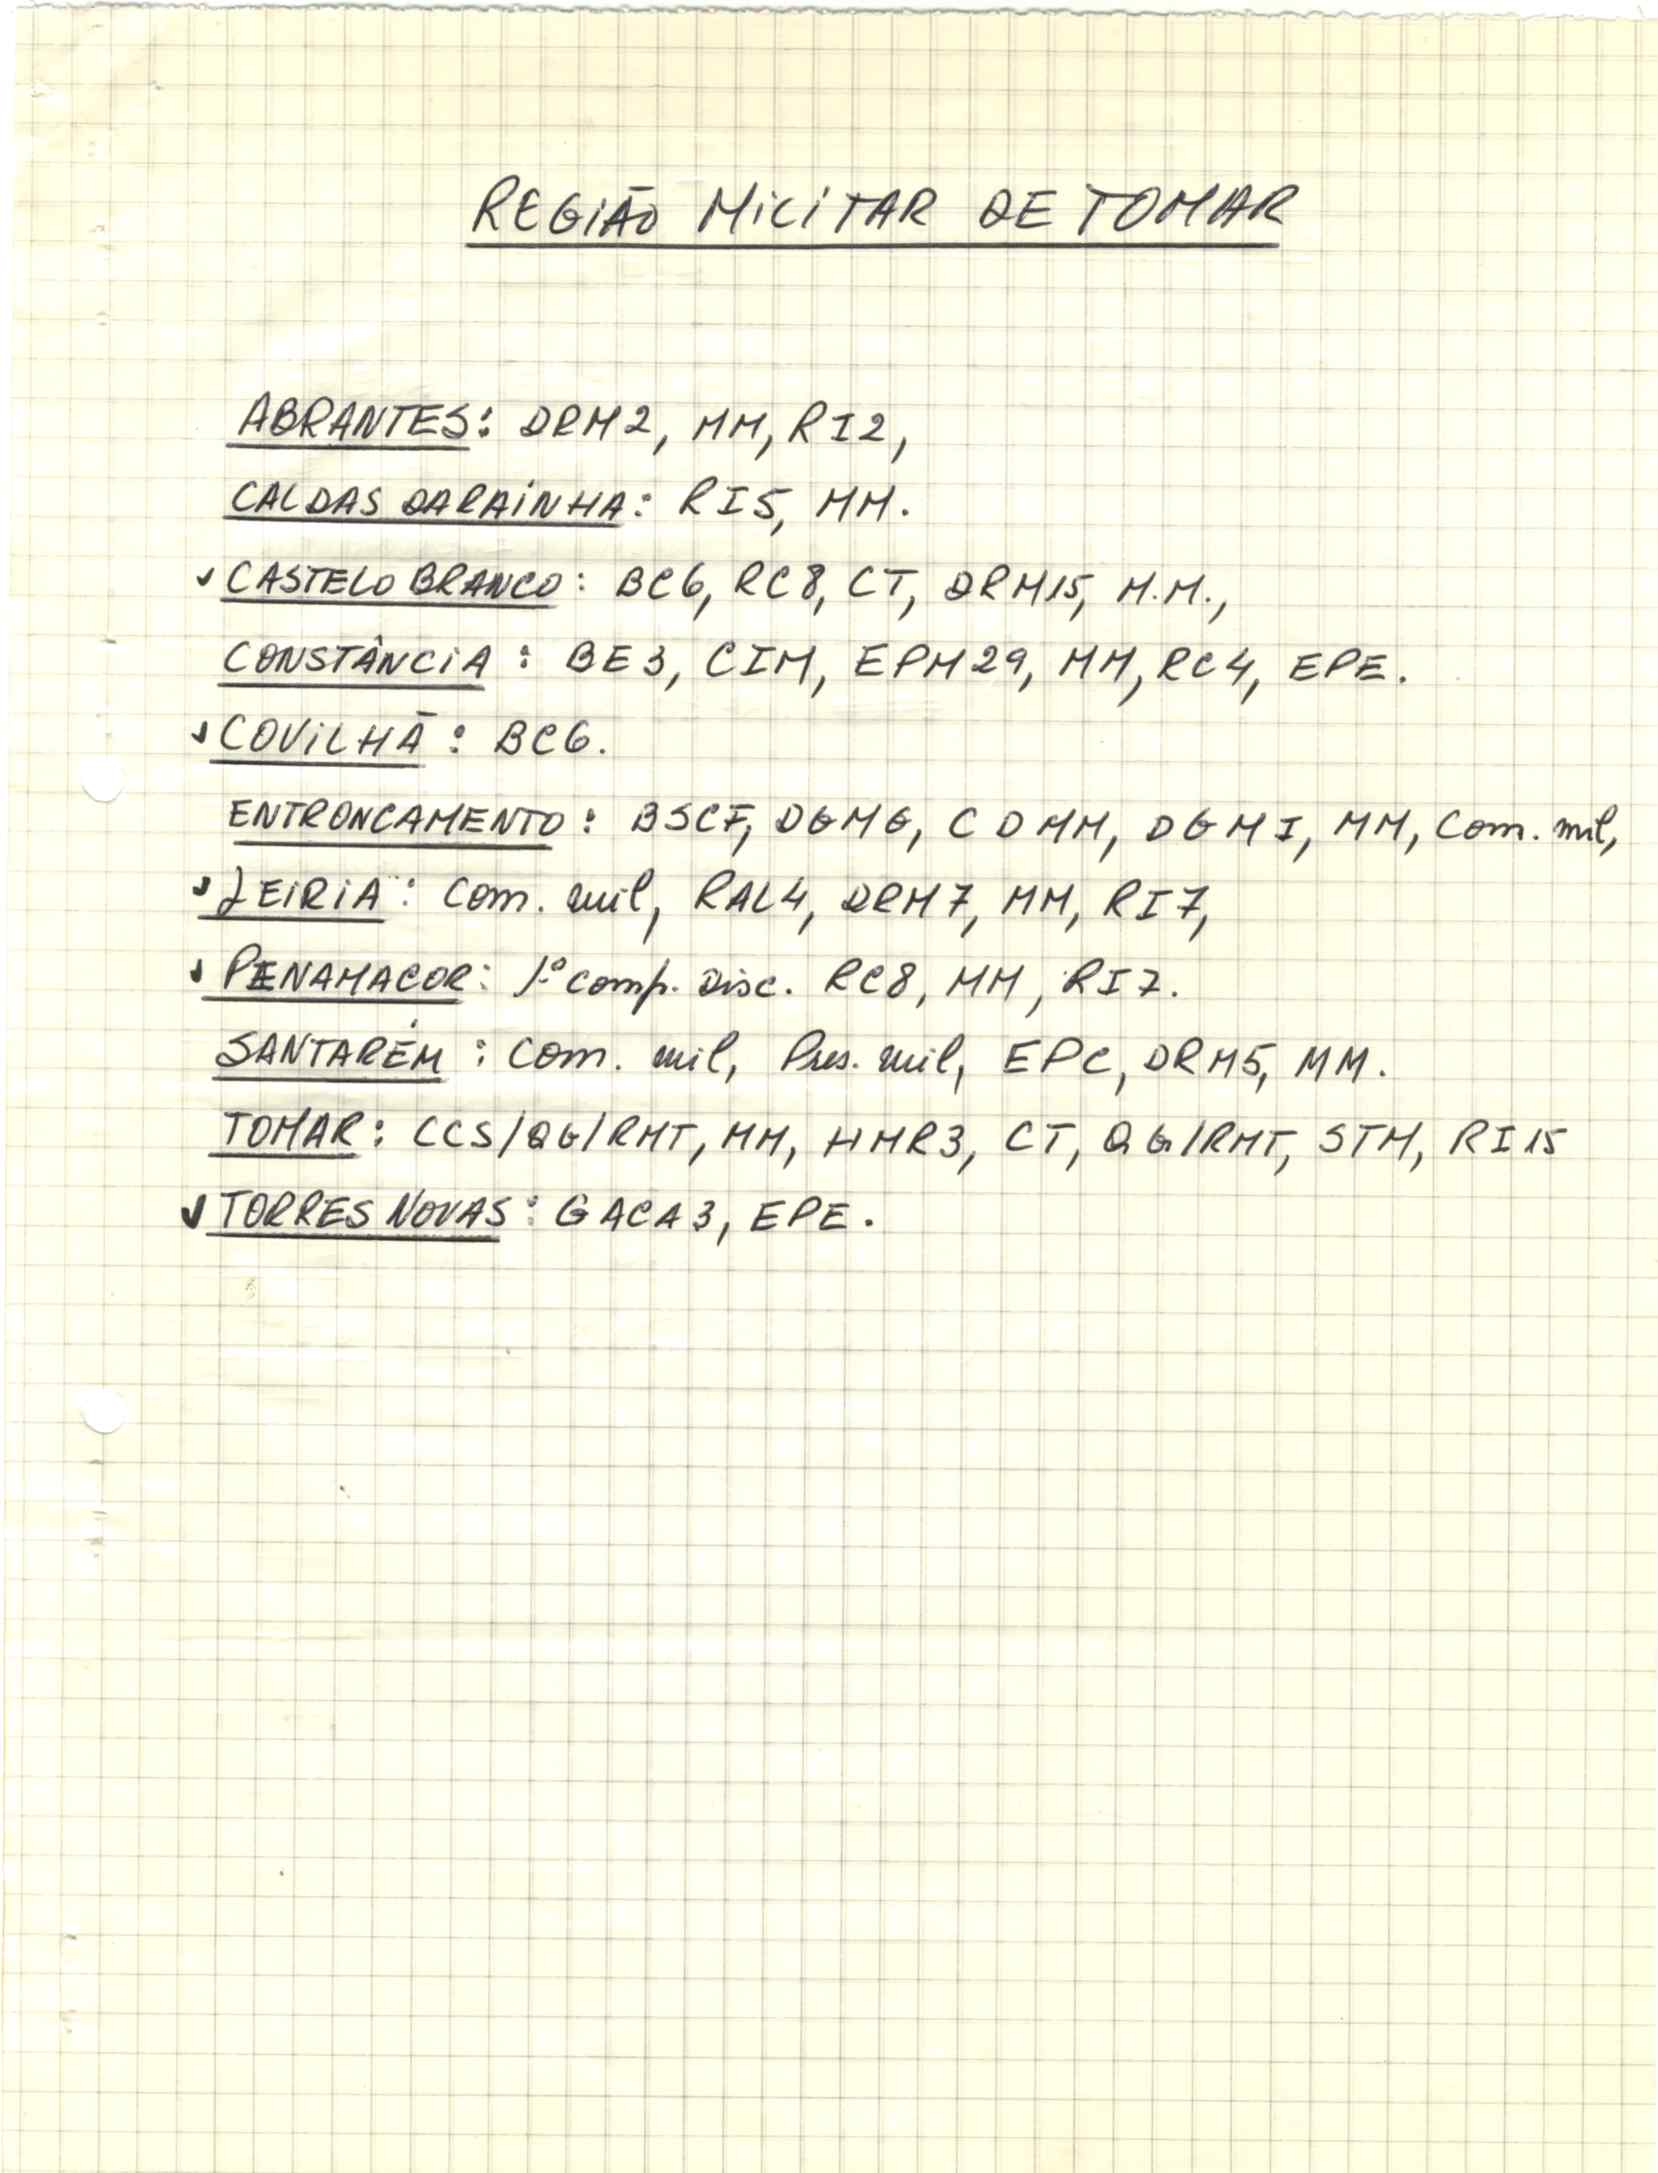 REGIÃO MILITAR DE TOMAR
ABRANTES: DRM2, MM, RI2,
CALDAS DA RAINHA: RI5, MM.
✓ CASTELO BRANCO: BC6, RC8, CT, DRM15, M.M.,
CONSTÂNCIA: BE3, CIM, EPM29, MM, RC4, EPE.
✓ COVILHÃ: BC6.
ENTRONCAMENTO: BSCF, DGMG, CDMM, DGMI, MM, Com. mil,
✓ LEIRIA: Com. mil, RAL4, DRM7, MM, RI7,
✓ PENAMACOR: 1º Comp. Disc. RC8, MM, RI7.
SANTARÉM: Com. mil, Pres. mil, EPC, DRM5, MM.
TOMAR: CCS/QG/RMT, MM, HMR3, CT, QG/RMT, STM, RI15
✓ TORRES NOVAS: GACA3, EPE.